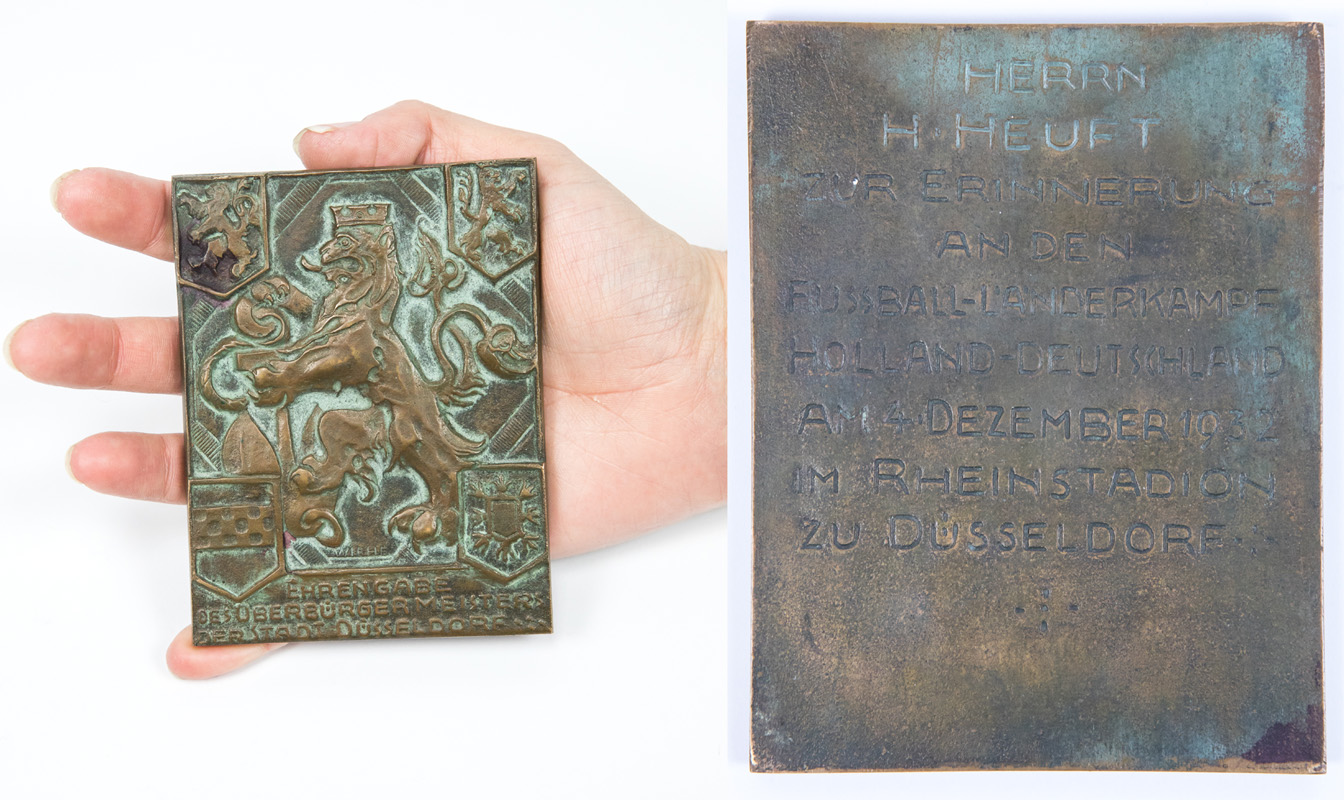 EHRENGABE
DES OBERBÜRGERMEISTERS
DER STADT DÜSSELDORF
HERRN
H. HEUFT
ZUR ERINNERUNG
AN DEN
FUSSBALL-LÄNDERKAMPF
HOLLAND-DEUTSCHLAND
AM 4. DEZEMBER 1932
IM RHEINSTADION
ZU DÜSSELDORF.